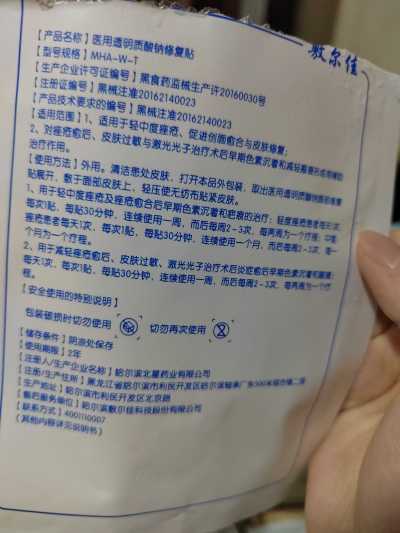 敷尔佳
【产品名称】医用透明质酸钠修复贴
【型号规格】MHA-W-T
【生产企业许可证编号】黑食药监械生产许20160030号
【注册证编号】黑械注准20162140023
【产品技术要求的编号】黑械注准20162140023
【适用范围】1、适用于轻中度痤疮、促进创面愈合与皮肤修复;
2、对痤疮愈后、皮肤过敏与激光光子治疗术后早期色素沉着和减轻瘢痕形成有辅助
治疗作用。
【使用方法】外用。清洁患处皮肤，打开本品外包装，取出医用透明质酸钠修复
贴展开，敷于面部皮肤上，轻压使无纺布贴紧皮肤。
1、用于轻中度痤疮及痤疮愈合后早期色素沉着和疤痕的治疗：轻度痤疮患者每天1次，
每次1贴，每贴30分钟，连续使用一周，而后每周2-3次，每两周为一个疗程；中度
痤疮患者每天1次，每次1贴，每贴30分钟，连续使用一个月，而后每周2-3次，每一
个月为一个疗程。
2、用于减轻痤疮愈后、皮肤过敏、激光光子治疗术后炎症愈后早期色素沉着和瘢痕：
每天1次，每次1贴，每贴30分钟，连续使用一周，而后每周2-3次，每两周为一个疗
程。
【安全使用的特别说明】
包装破损时切勿使用 切勿再次使用
【储存条件】阴凉处保存
【使用期限】2年
【注册人/生产企业名称】哈尔滨北星药业有限公司
【注册/生产住所】黑龙江省哈尔滨市利民开发区哈尔滨轴承厂东300米综合楼二层
【生产地址】哈尔滨市利民开发区北京路
【售后服务单位】哈尔滨敷尔佳科技股份有限公司
【联系方式】4001110007
(其他内容详见说明书)